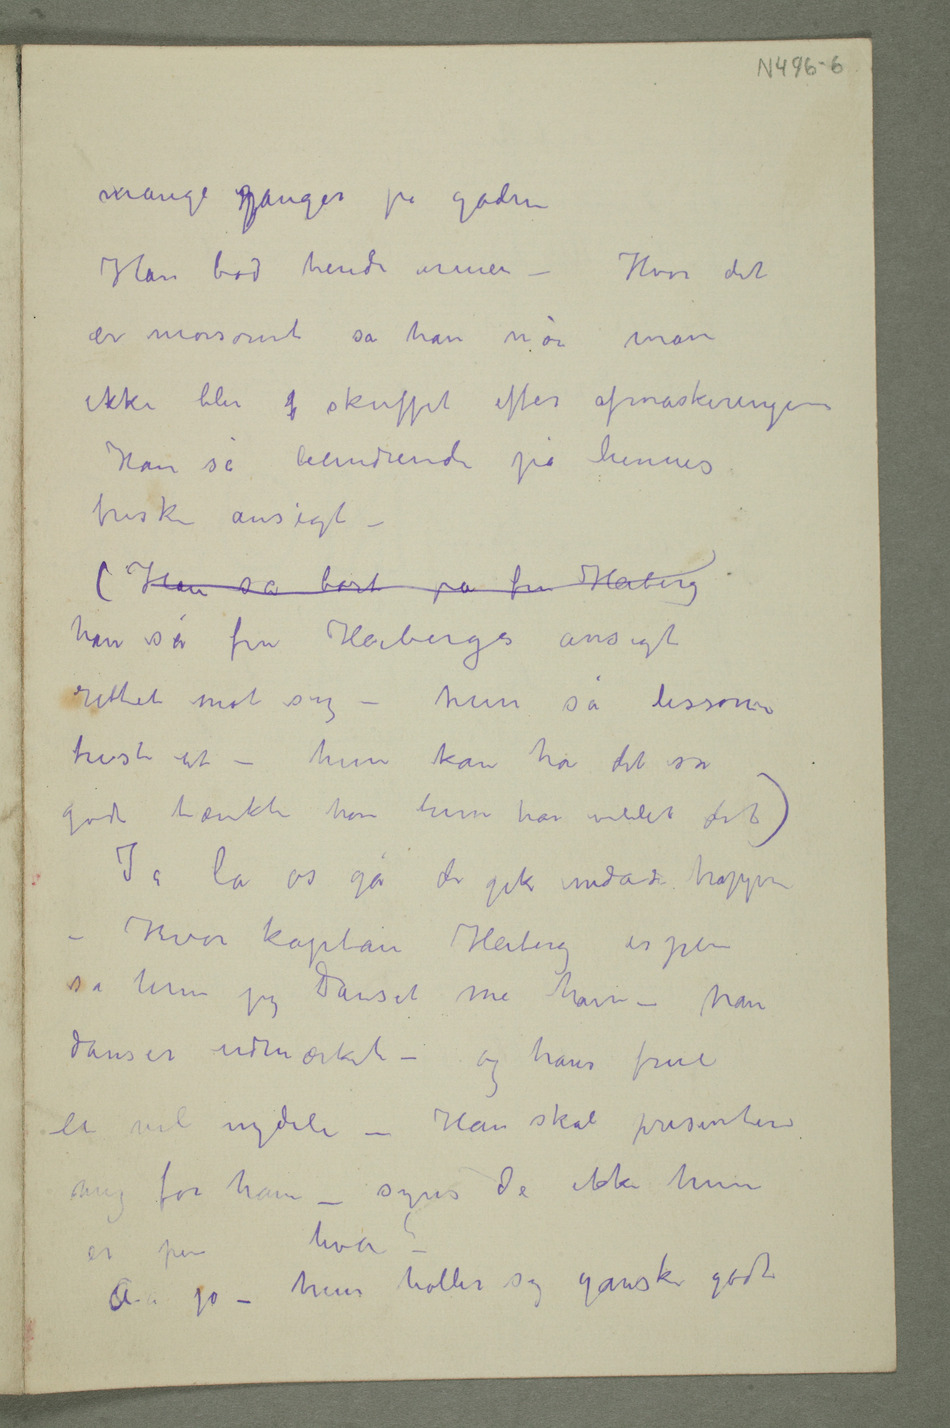 N496-6
mange ganger på gaden
Han bød hende armen – Hvor det
er morsomt sa han når man
ikke blir skuffet efter afmaskeringen
Han så beundrende på hennes
friske ansigt –
(Han så bort på fru Heiberg
han så fru Heibergs ansigt
rettet mot sig – hun så
trist ut – hun kan ha det så
godt tænkte han hun har villet det)
Ja la os gå de gik nedad trappen
– Hvor kaptain Heiberg er pen
sa hun jeg danset me ham – han
danser udmærket – og hans frue
er vel nydeli – Han skal presentere
mig for ham – synes De ikke hun
er pen hva? –
Aa jo – hun holler sig ganske godt